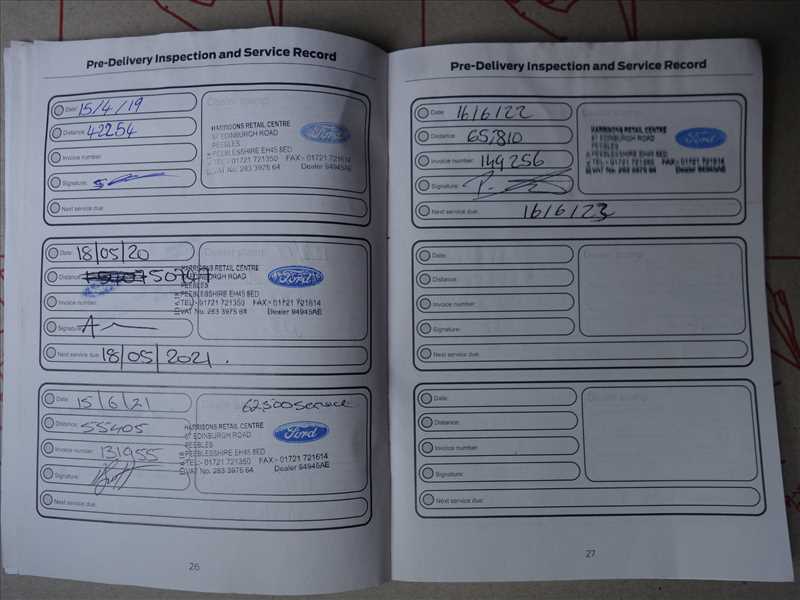 Pre-Delivery Inspection and Service Record
Date: 15/4/19
Distance: 42254
Invoice number:
Signature:
Next service due:
Dealer stamp:
HARRISONS RETAIL CENTRE
97 EDINBURGH ROAD
PEEBLES
PEEBLESSHIRE EH45 8ED
TEL:- 01721 721350 FAX:- 01721 721614
VAT No. 283 3975 64 Dealer 94945AE
Ford
Date: 18/05/20
Distance: 50747
Invoice number:
Signature:
Next service due: 18/05/2021.
Dealer stamp:
HARRISONS RETAIL CENTRE
EDINBURGH ROAD
PEEBLES
PEEBLESSHIRE EH45 8ED
TEL:- 01721 721350 FAX:- 01721 721614
VAT No. 283 3975 64 Dealer 94945AE
Ford
Date: 15/6/21
Distance: 55405
Invoice number: 131955
Signature:
Next service due:
62500 service
HARRISONS RETAIL CENTRE
97 EDINBURGH ROAD
PEEBLES
PEEBLESSHIRE EH45 8ED
TEL:- 01721 721350 FAX:- 01721 721614
VAT No. 283 3975 64 Dealer 94945AE
Ford
26
Pre-Delivery Inspection and Service Record
Date: 16/6/22
Distance: 65,810
Invoice number: 149256
Signature:
Next service due: 16/6/23
HARRISONS RETAIL CENTRE
97 EDINBURGH ROAD
PEEBLES
PEEBLESSHIRE EH45 8ED
TEL:- 01721 721350 FAX:- 01721 721614
VAT No. 283 3975 64 Dealer 94945AE
Ford
Date:
Distance:
Invoice number:
Signature:
Next service due:
Dealer stamp:
Date:
Distance:
Invoice number:
Signature:
Next service due:
Dealer stamp:
27